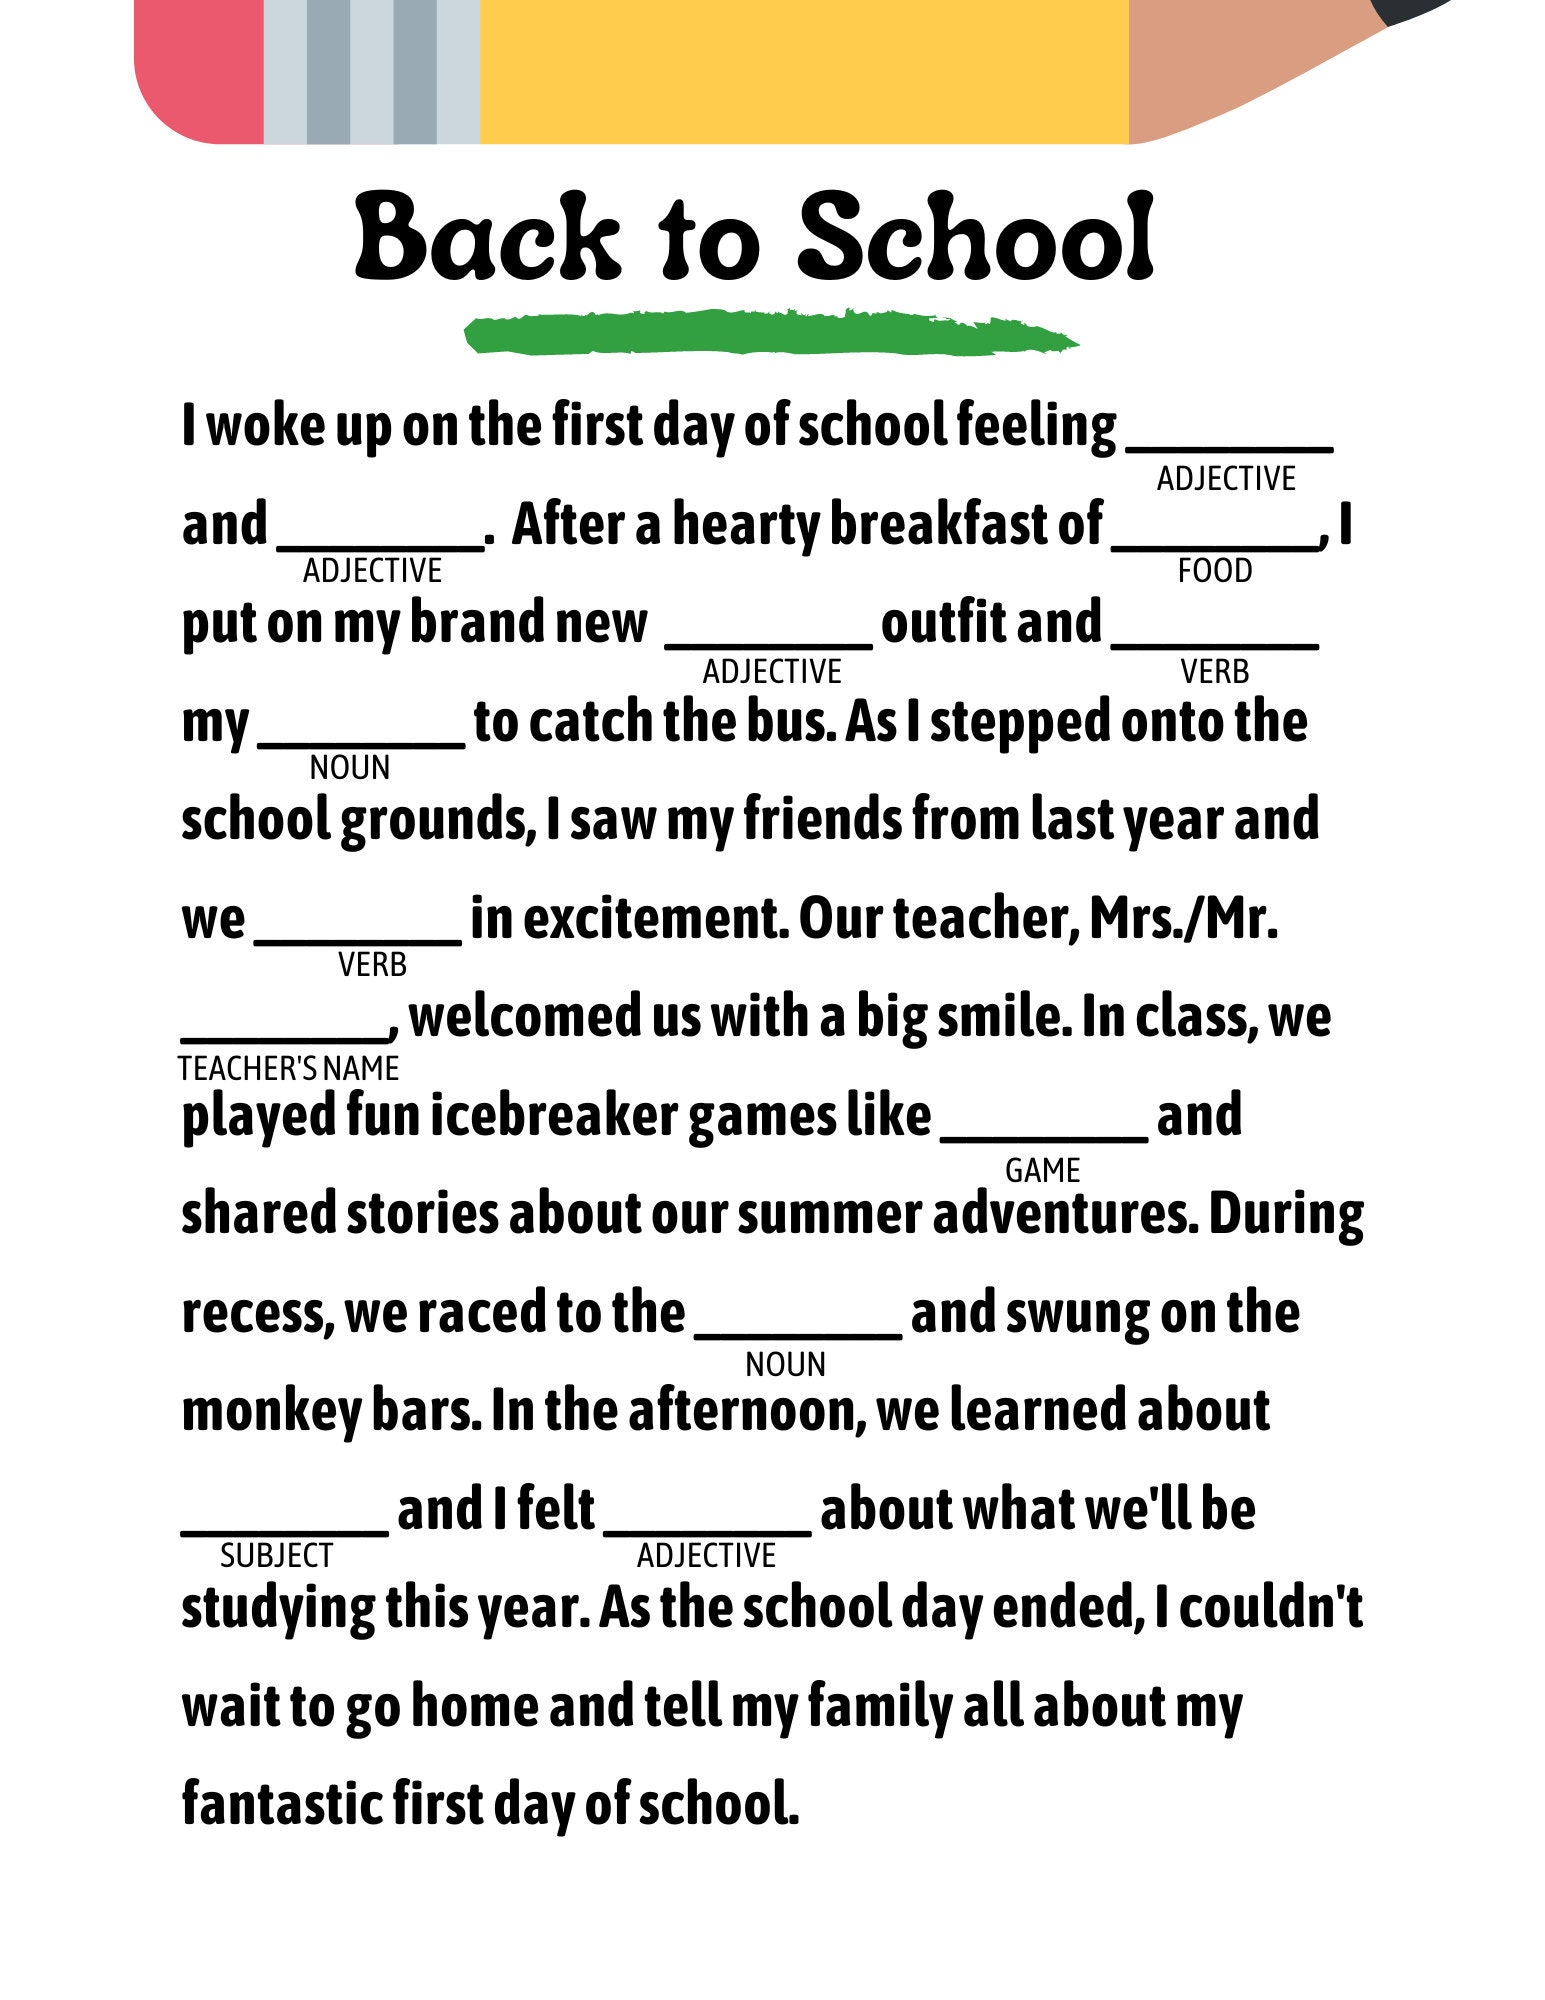 Back to School
I woke up on the first day of school feeling ________
ADJECTIVE
and ________. After a hearty breakfast of ________, I
ADJECTIVE FOOD
put on my brand new ________ outfit and ________
ADJECTIVE VERB
my ________ to catch the bus. As I stepped onto the
NOUN
school grounds, I saw my friends from last year and
we ________ in excitement. Our teacher, Mrs./Mr.
VERB
________, welcomed us with a big smile. In class, we
TEACHER'S NAME
played fun icebreaker games like ________ and
GAME
shared stories about our summer adventures. During
recess, we raced to the ________ and swung on the
NOUN
monkey bars. In the afternoon, we learned about
________ and I felt ________ about what we'll be
SUBJECT ADJECTIVE
studying this year. As the school day ended, I couldn't
wait to go home and tell my family all about my
fantastic first day of school.